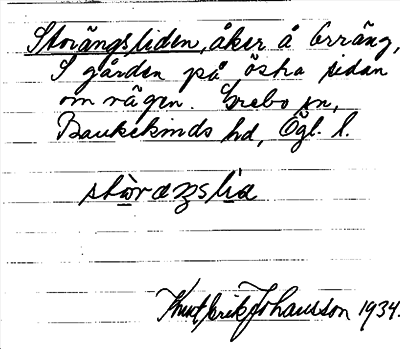 Storängsliden, åker å Orräng,
S gården på östra sidan
om vägen. Grebo sn,
Bankekinds hd, Ögl. l.
Knut Erik Johansson 1934.